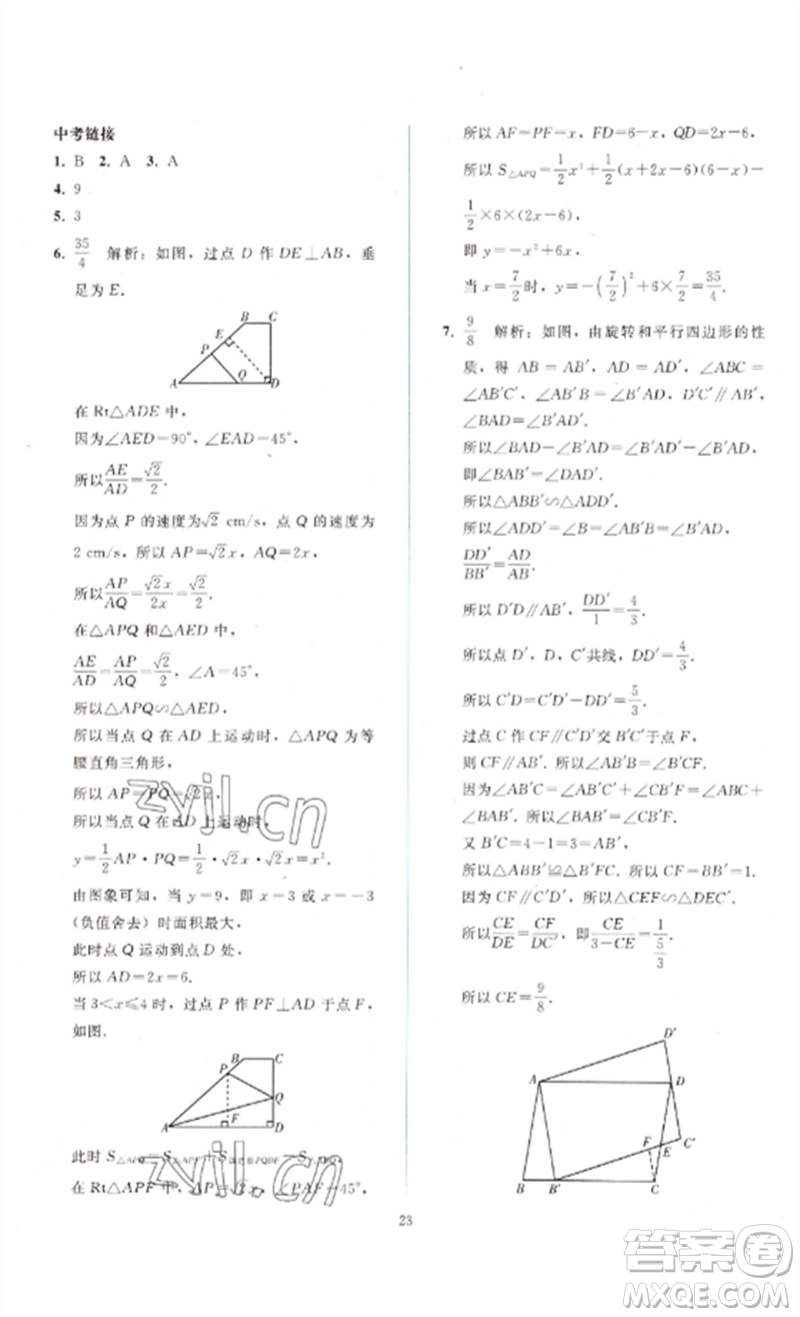 中考链接
1. B 2. A 3. A
4. 9
5. 3
6. 35/4 解析：如图，过点 D 作 DE⊥AB，垂
足为 E.
B C
E
P
A Q D
在 Rt△ADE 中，
因为∠AED=90°，∠EAD=45°，
所以AE/AD=√2/2.
因为点 P 的速度为√2 cm/s，点 Q 的速度为
2 cm/s，所以 AP=√2x，AQ=2x，
所以AP/AQ=√2x/2x=√2/2.
在△APQ 和△AED 中，
AE/AD=AP/AQ=√2/2，∠A=45°，
所以△APQ∽△AED，
所以当点 Q 在 AD 上运动时，△APQ 为等
腰直角三角形，
所以 AP=PQ=√2x，
所以当点 Q 在 AD 上运动时，
y=1/2AP·PQ=1/2·√2x·√2x=x².
由图象可知，当 y=9，即 x=3 或 x=-3
(负值舍去)时面积最大，
此时点 Q 运动到点 D 处，
所以 AD=2x=6.
当 3<x≤4 时，过点 P 作 PF⊥AD 于点 F，
如图.
B C
P
Q
A F D
此时 S△APQ=S△APF+S四边形PQDF-S
在 Rt△APF 中，AP=√2x，∠PAF=45°，
所以 AF=PF=x，FD=6-x，QD=2x-6，
所以 S△APQ=1/2x²+1/2(x+2x-6)(6-x)-
1/2×6×(2x-6)，
即 y=-x²+6x，
当 x=7/2时，y=-(7/2)²+6×7/2=35/4.
7. 9/8 解析：如图，由旋转和平行四边形的性
质，得 AB=AB′，AD=AD′，∠ABC=
∠AB′C′，∠AB′B=∠B′AD，∠ABC=
∠BAD=∠B′AD′.
所以∠BAD-∠B′AD=∠B′AD′-∠B′AD，
即∠BAB′=∠DAD′.
所以△ABB′∽△ADD′.
所以∠ADD′=∠B=∠AB′B=∠B′AD，
DD′/BB′=AD/AB.
所以 D′D∥AB′，所以DD′/1=4/3.
所以点 D′，D，C′共线，DD′=4/3.
所以 C′D=C′D′-DD′=5/3.
过点 C 作 CF∥C′D′交 B′C′于点 F，
则 CF∥AB′. 所以∠AB′C′=∠B′FC.
因为∠AB′C=∠AB′C′+∠CB′C′=∠B+
∠BAB′，所以∠CB′C′=∠BAB′.
又 B′C=4-1=3，所以 AB=B′C.
所以△ABB′≌△B′FC. 所以 CF=BB′=1.
因为 CF∥C′D′，所以△CEF∽△DEC′.
所以CE/DE=CF/DC′，即CE/(3-CE)=1/(5/3).
所以 CE=9/8.
D′
A D
F E C′
B B′ C
23
zyjl.cn
zyjl.cn
答案卷
MXQE.COM